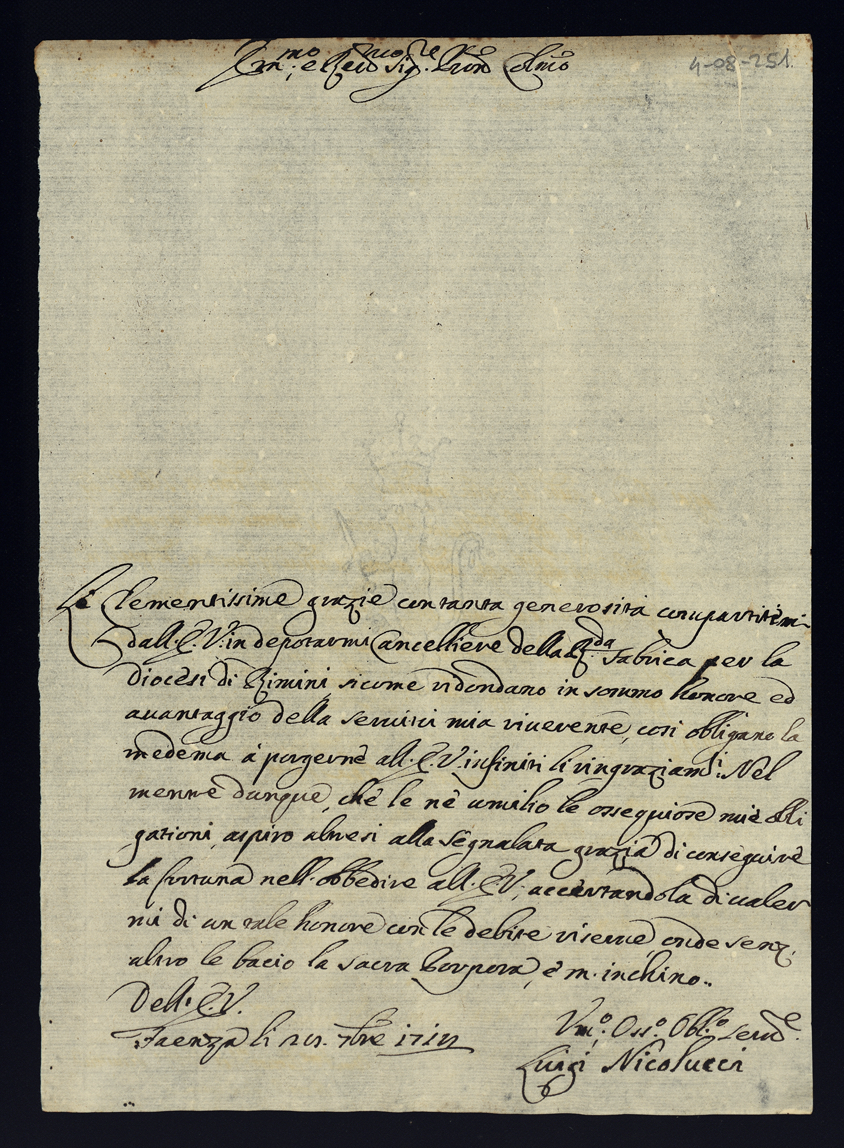 Em.mo e Rev.mo Sig.re P.ron Col.mo
4-08-251
Le Clementissime grazie con tanta generosità compartitemi
dall'E.V. in deputarmi Cancelliere della R.da Fabrica per la
diocesi di Rimini, sicome ridondano in sommo honore ed
avantaggio della servitù mia riverente, così obligano la
medema à porgerne all'E.V. infiniti li ringraziam.ti. Nel
mentre dunque, che le ne umilio le ossequiose mie obli
gationi, aspiro altresi alla segnalata grazia di conseguire
la fortuna nell'obbedire all'E.V., accertandola di valer
mi di un tale honore con le debite riserve, onde senz'
altro le bacio la sacra Porpora, e m'inchino..
Dell'E.V.
Faenza li 7bre
Um.o Oss.o Obb.o Serv.e
Luigi Nicolucci